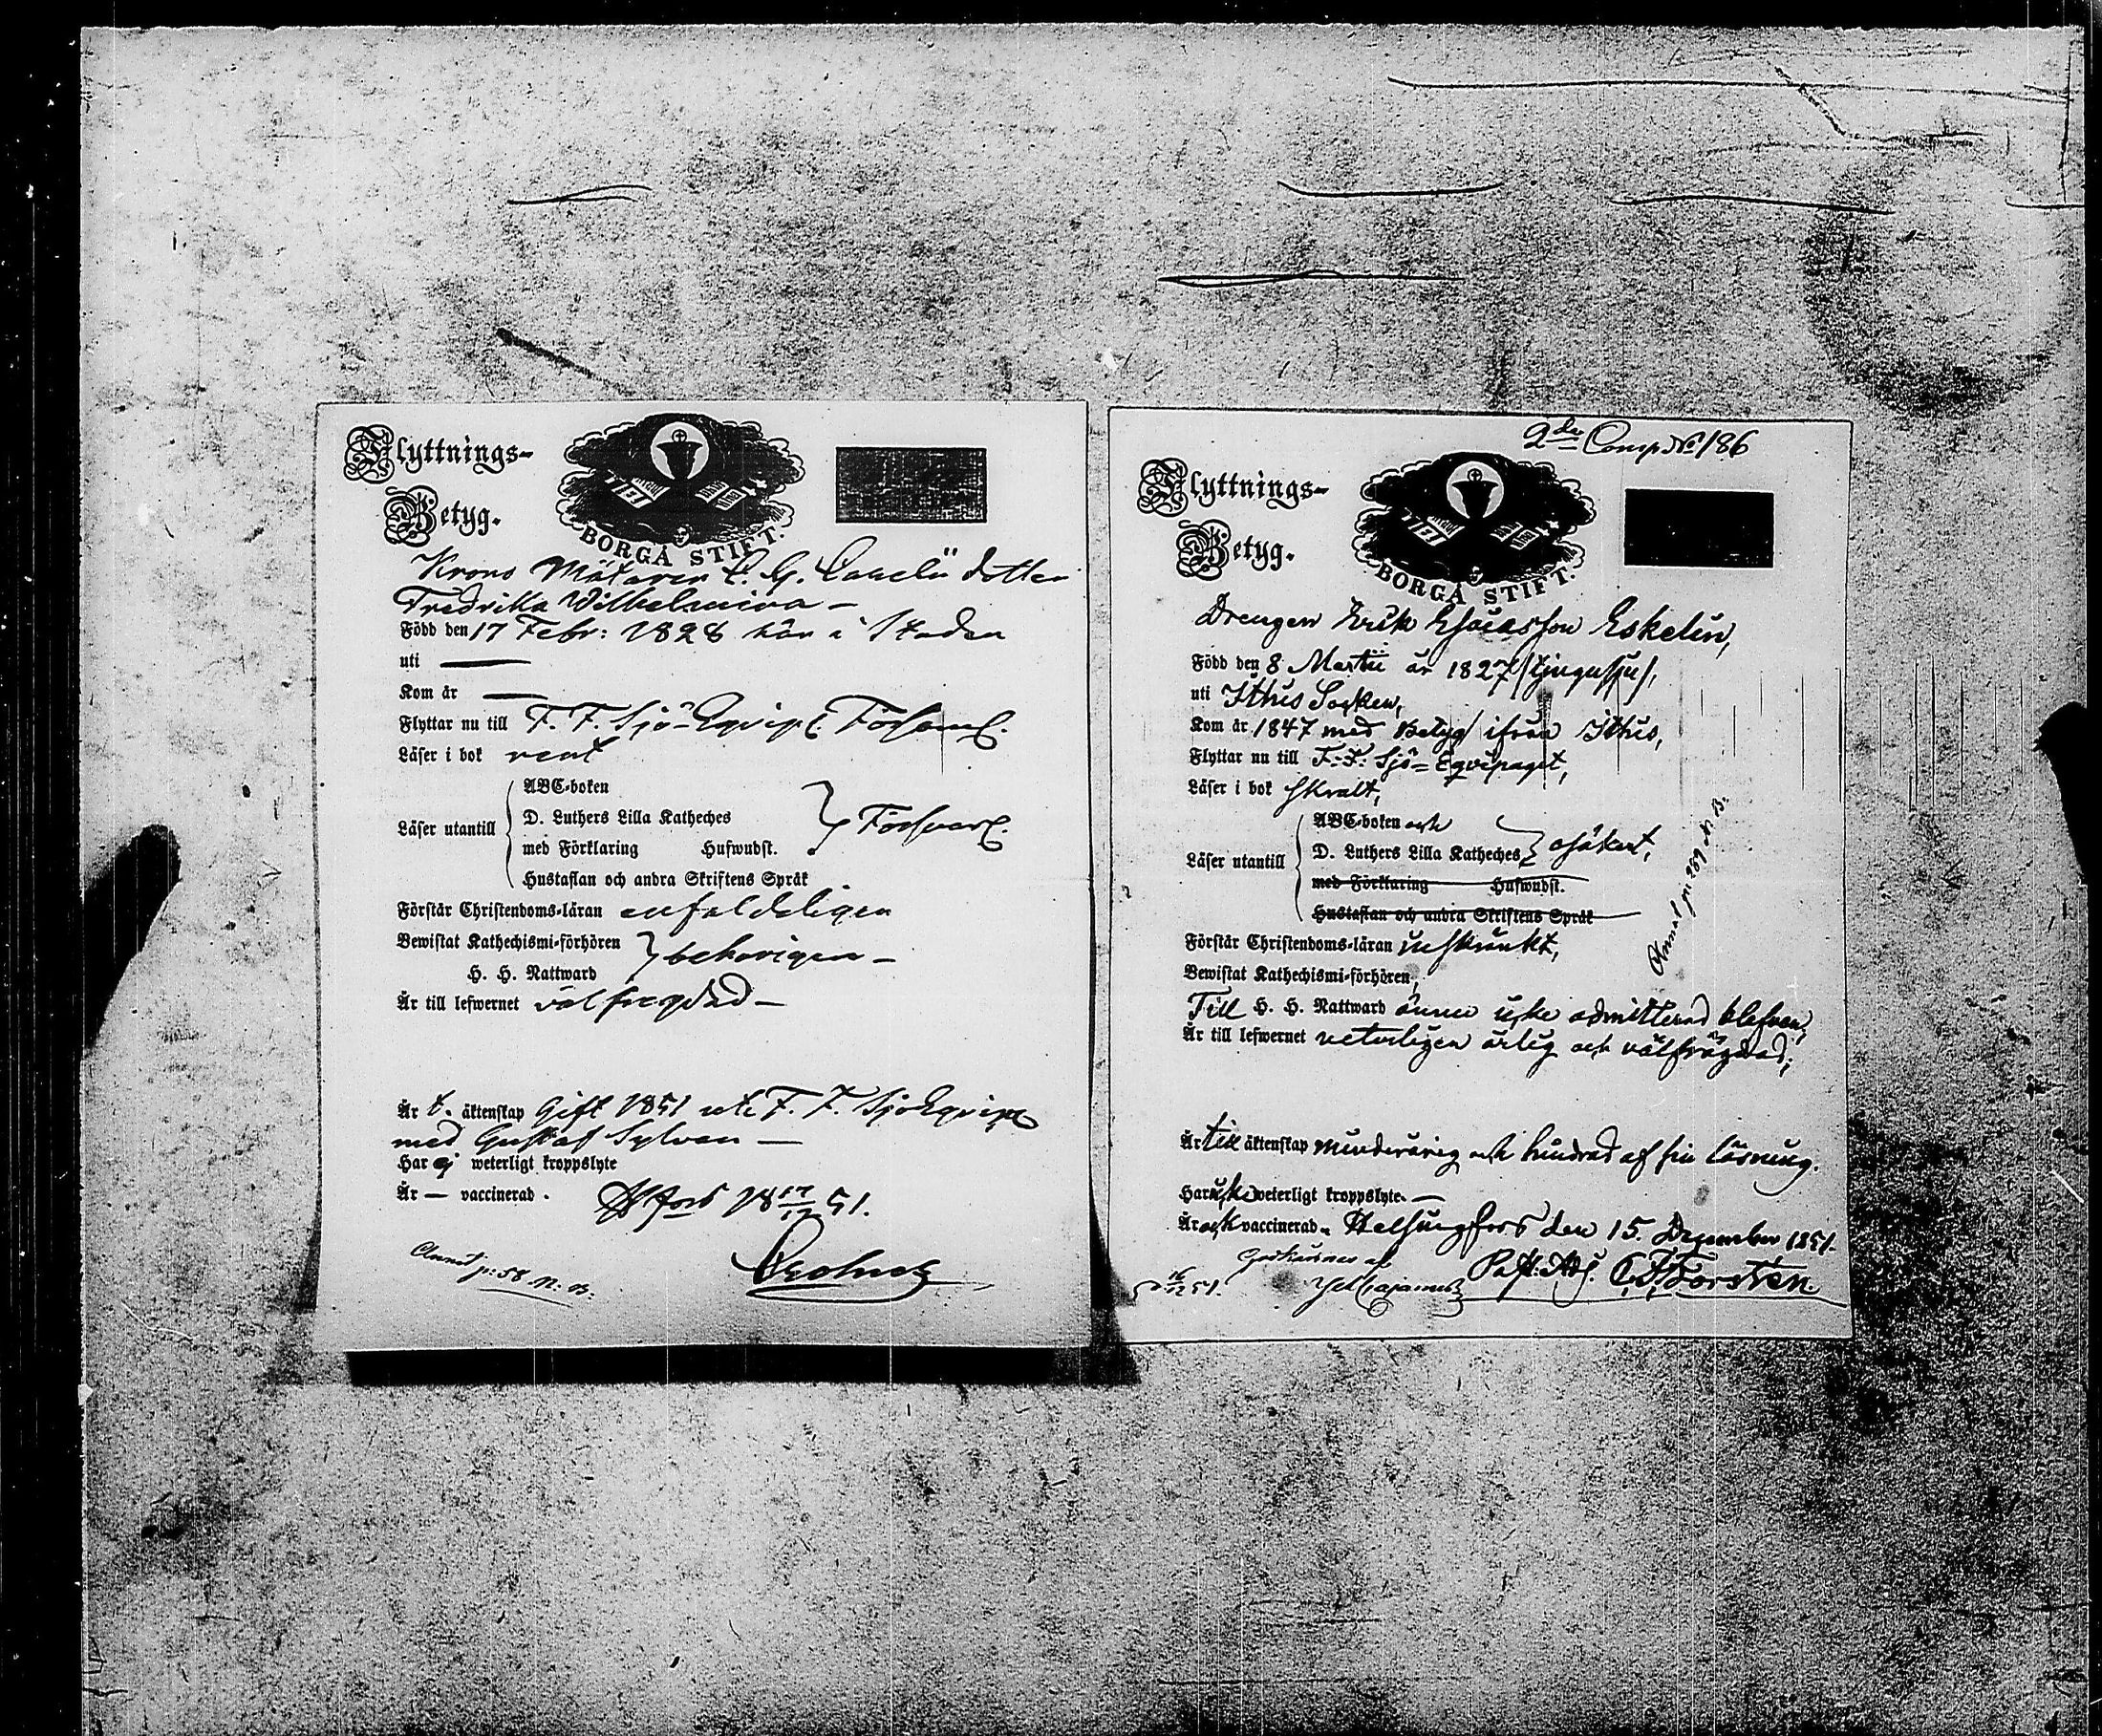 Flyttnings-
Betyg.
BORGÅ STIFT.
Krono C. G. dotter
Fredrika Wilhelmina —
Född den 17 Febr: 1828 här i Staden
uti —
Kom år —
Flyttar nu till F. F. Sjö-Eqvip. Församl.
Läser i bok rent
ABC-boken
D. Luthers Lilla Katheches
Läser utantill Försvarl.
med Förklaring Hufwudst.
Hustaflan och andra Skriftens Språk
Förstår Christendoms-läran enfaldeligen
Bewistat Kathechismi-förhören behörigen —
H. H. Nattward
Är till lefwernet välfregdad —
Är t. äktenskap Gift 1851 uti F. F. SjöEqvip
med Gustaf Sylvan —
Har ej weterligt kroppslyte
Är — vaccinerad. H:fors 18 17/12 51.
Annot p: 58 N. B.
2dra Comp. No 186
Flyttnings-
Betyg.
BORGÅ STIFT.
Drengen Erik Esaiasson Eskelin,
Född den 8 Martii år 1827 /tjugusju/,
uti Ithis Socken,
Kom år 1847 med Betyg ifrån Ithis,
Flyttar nu till F. F. Sjö-Eqvipaget,
Läser i bok skralt,
ABC-boken och
Läser utantill D. Luthers Lilla Katheches osäkert,
med Förklaring Hufwudst.
Hustaflan och andra Skriftens Språk
Förstår Christendoms-läran inskränkt,
Bewistat Kathechismi-förhören,
Till H. H. Nattward ännu icke admitterad blefven,
Är till lefwernet veterligen ärlig och välfrägdad;
Är till äktenskap minderårig och hindrad af sin läsning.
Har icke weterligt kroppslyte. —
Är ock vaccinerad. Helsingfors den 15. December 1851.
Godkännes af Past. Adj. C. F. Forstén.
16/12 51.
Annot p: 289 N. B.